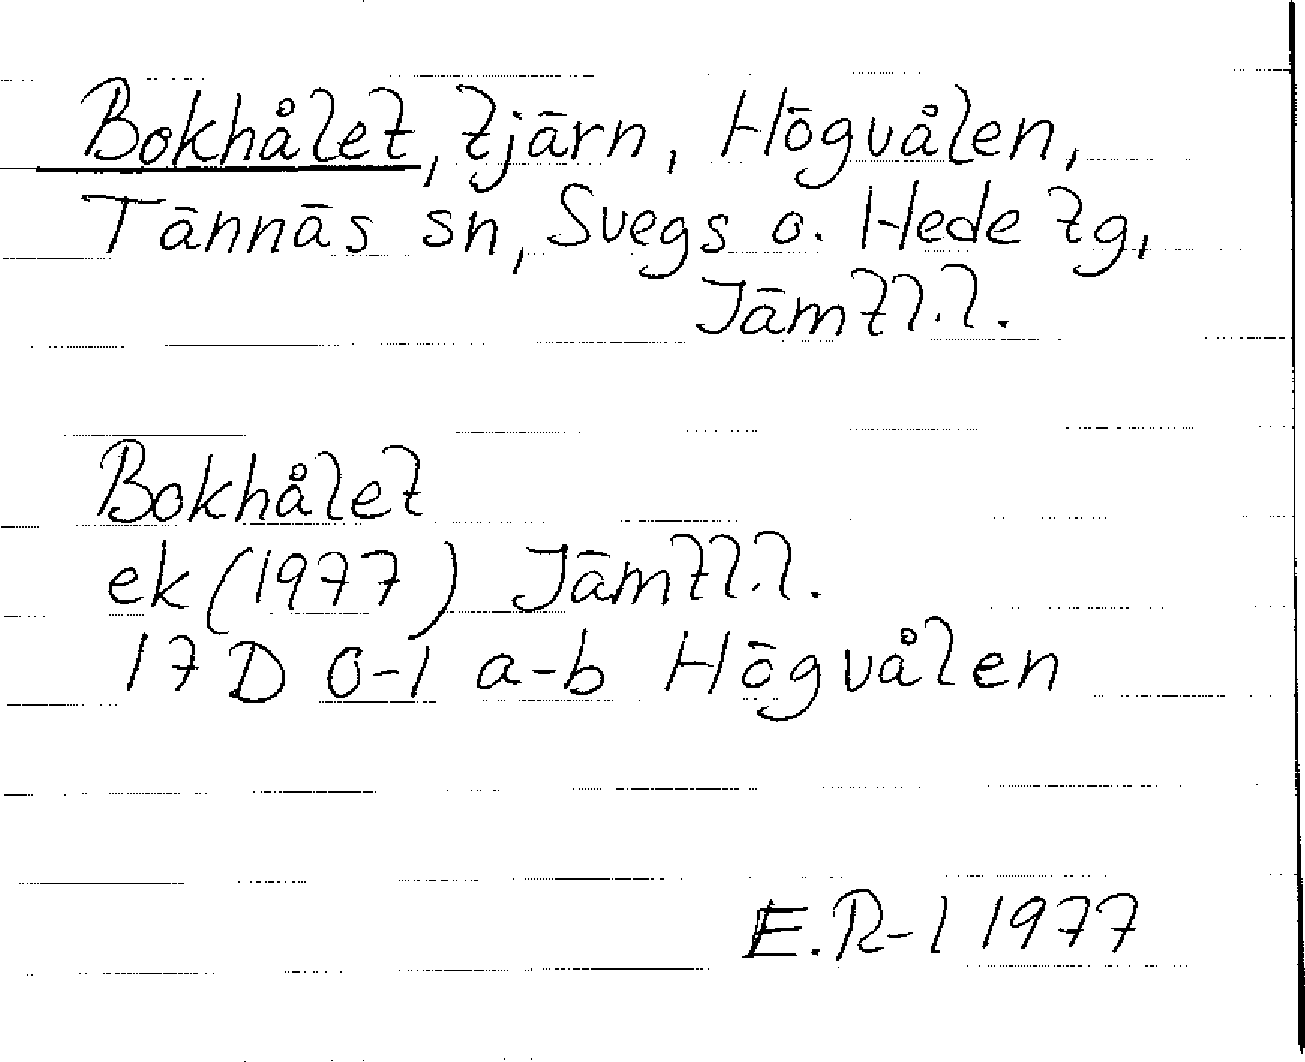 Bokhålet, tjärn, Högvålen,
Tännäs sn, Svegs o. Hede tg,
Jämtl.l.
Bokhålet
ek (1977) Jämtl.l.
17 D 0-1 a-b Högvålen
E.R-l 1977